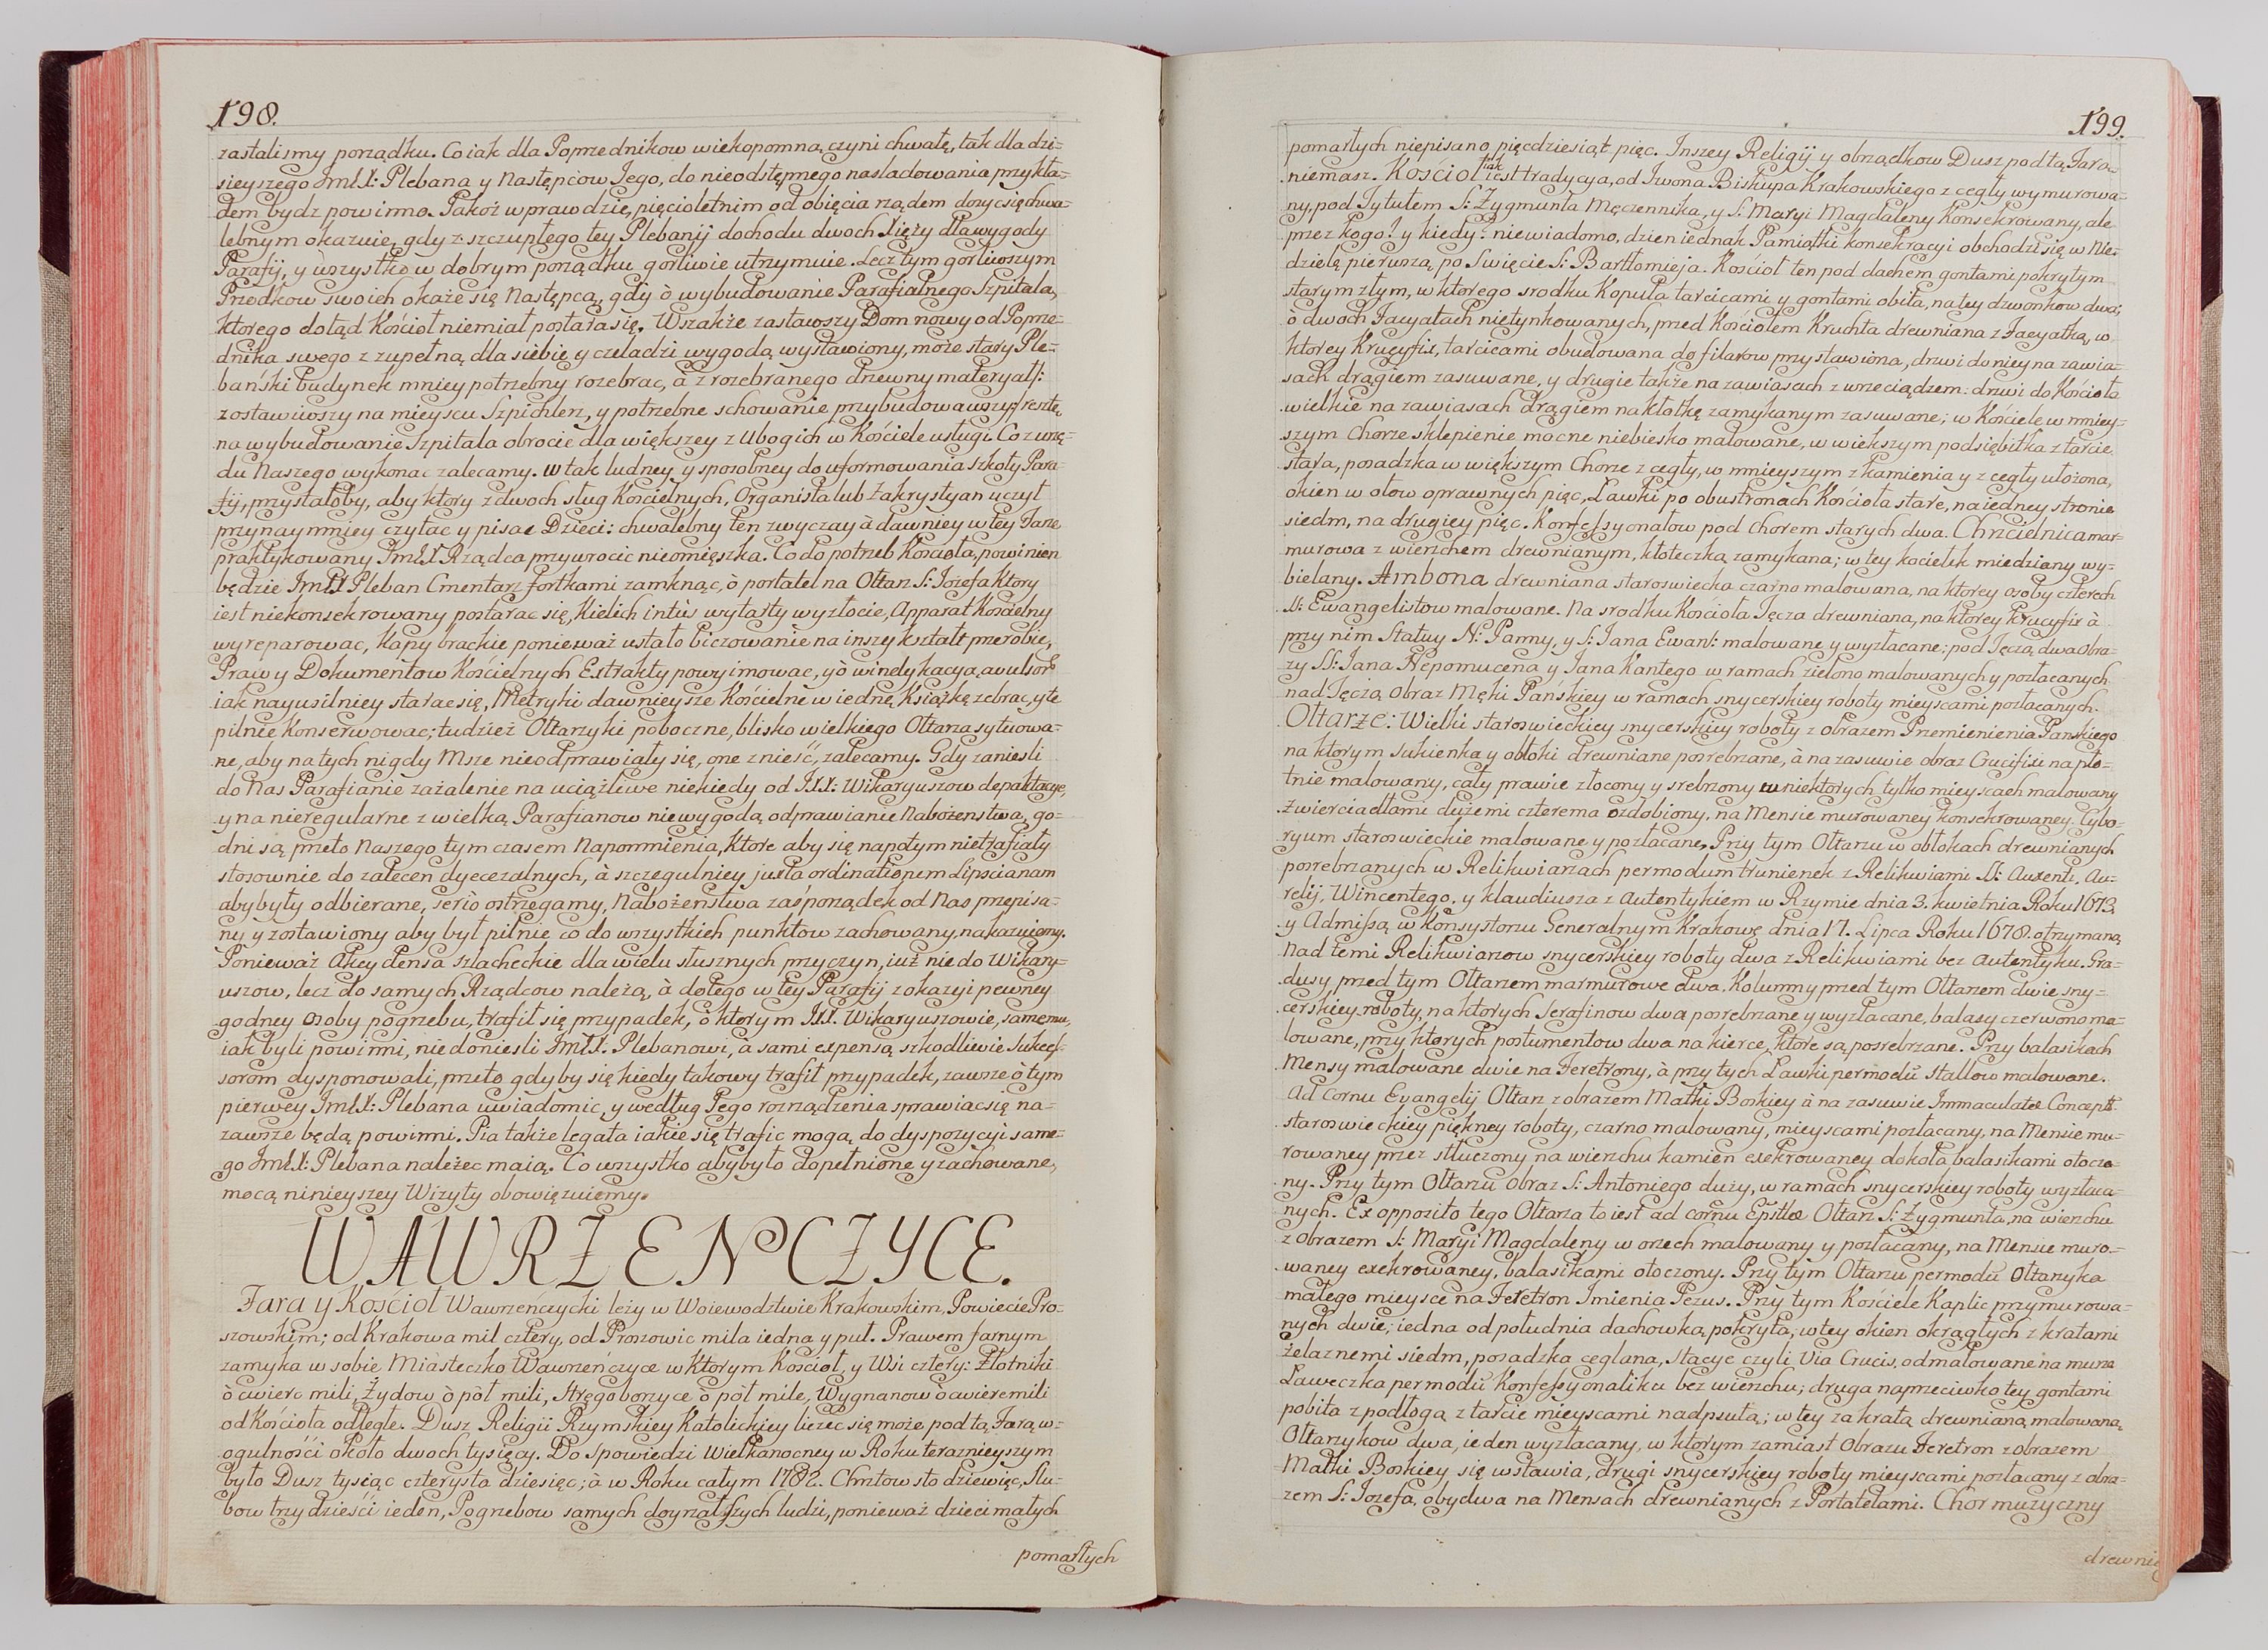 198.
zastalismy porządku. Co iak dla Poprzednikow wiekopomną czyni chwałę, tak dla dzi-
sieyszego JmłX: Plebana y Następcow Jego, do nieodstępnego nasladowania przykła-
dem bydz powinno. Jakoż wprawdzie, pięcioletnim od obięcia rządem dosyc się chwa-
lebnym okazuie, gdy z szczupłego tey Plebanij dochodu dwoch Xięży dla wygody
Parafij, y wszystko w dobrym porządku gorliwie utrzymuie. Lecz tym gorliwszym
Przodkow swoich okaże się Następcą, gdy ò wybudowanie Parafialnego Szpitala,
ktorego dotąd Kościoł niemiał postara się. Wszakże zastawszy Dom nowy od Poprze-
dnika swego z zupełną dla siebie y czeladzi wygodą wystawiony, może stary Ple-
bański budynek mniey potrzebny rozebrac, à z rozebranego drzewny materyał /:
zostawiwszy na mieyscu Szpichlerz, y potrzebne schowanie przybudowawszy :/ resztę
na wybudowanie Szpitala obrocic dla większey z Ubogich w Kościele usługi. Co z urzę-
du Naszego wykonac zalecamy. W tak ludney y sposobney do uformowania szkoły Para-
fij, przystałoby, aby ktory z dwoch sług Kościelnych, Organista lub Zakrystyan uczył
przynaymniey czytac y pisac Dzieci: chwalebny ten zwyczay à dawniey w tey Farze
praktykowany JmłX Rządca przywrocic nieomięszka. Co do potrzeb Kościoła, powinien
będzie JmłX Pleban Cmentarz fortkami zamknąc, ò portatel na Ołtarz S: Jozefa ktory
iest niekonsekrowany postarac się, Kielich intùs wytarty wyzłocic, Apparat Kościelny
wyreparowac, Kapy brackie ponieważ ustało biczowanie na inszy kształt przerobic,
Praw y Dokumentow Kościelnych Extrakty powyimowac, y ò windykacyą avulsor
iak nayusilniey starac się, Metryki dawnieysze Kościelne w iednę Książkę zebrac, y te
pilnie Konserwowac; tudzież Ołtarzyki poboczne, blisko wielkiego Ołtarza sytuowa-
ne, aby na tych nigdy Msze nieodprawiały się, one znieść, zalecamy. Gdy zaniesli
do Nas Parafianie zażalenie na uciążliwe niekiedy od JXX: Wikaryuszow depaktacye,
y na nieregularne z wielką Parafianow niewygodą odprawianie Nabożenstwa, go-
dni są przeto Naszego tym czasem Napomnienia, Ktore aby się napotym nietrafiały
stosownie do zaleceń dyecezalnych, à szczegulniey juxta ordinationem Lipscianam
aby były odbierane, seriò ostrzegamy, Nabożeństwa zaś porządek od Nas przepisa-
ny y zostawiony aby był pilnie co do wszystkich punktow zachowany, nakazuiemy.
Ponieważ Akcydensa szlacheckie dla wielu słusznych przyczyn, iuż nie do Wikary-
uszow, lecz do samych Rządcow należą, à do tego w tey Parafij z okazyi pewney
godney Osoby pogrzebu, trafił się przypadek, ò ktorym JXX. Wikaryuszowie, samemu,
iak byli powinni, niedoniesli JmłX: Plebanowi, à sami expensą szkodliwie Sukces-
sorom dysponowali, przeto gdyby się kiedy takowy trafił przypadek, zawsze ò tym
pierwey JmłX: Plebana uwiadomic, y według Jego rozrządzenia sprawiac się na-
zawsze będą powinni. Pia także legata iakie się trafic mogą do dyspozycyi same-
go JmłX: Plebana należec maią. Co wszystko aby było dopełnione y zachowane,
mocą ninieyszey Wizyty obowięzuiemy.
WAWRZENCZYCE.
Fara y Kościoł Wawrzeńczycki leży w Woiewodztwie Krakowskim, Powiecie Pro-
szowskim; od Krakowa mil cztery, od Proszowic mila iedna y puł. Prawem farnym
zamyka w sobie Miasteczko Wawrzeńczyce w ktorym Kościoł, y Wsi cztery: Złotniki
ò cwierc mili, Żydow ò pòł mili, Stręgoborzyce ò pòł mile, Wygnanow ò cwierc mili
od Kościoła odległe. Dusz Religii Rzymskiey Katolickiey liczec się może pod tą Farą w-
ogulności około dwoch tysięcy. Do Spowiedzi Wielkanocney w Roku teraznieyszym
było Dusz tysiąc czterysta dziesięc; à w Roku całym 1782. Chrztow sto dziewięc, Slu-
bow trzydzieści ieden, Pogrzebow samych doyrzalszych ludzi, ponieważ dzieci małych
pomarłych
199.
pomarłych niepisano, pięcdziesiąt pięc. Inszey Religij y obrządkow Dusz pod tą Farą
niemasz. Kościoł iak iest tradycya, od Iwona Biskupa Krakowskiego z cegły wymurowa-
ny, pod Tytułem S: Zygmunta Męczennika, y S: Maryi Magdaleny Konsekrowany, ale
przez kogo? y kiedy? niewiadomo, dzien iednak Pamiątki konsekracyi obchodzi się w Nie-
dzielę pierwszą po Swięcie S: Bartłomieja. Kościoł ten pod dachem gontami pokrytym
starym złym, w ktorego srodku Kopuła tarcicami y gontami obita, na tey dzwonkow dwa;
ò dwoch Facyatach nietynkowanych, przed Kościołem Kruchta drewniana z Facyatką, w
ktorey Krucyfix, tarcicami obudowana do filarow przystawiona, drzwi do niey na zawia-
sach drągiem zasuwane, y drugie także na zawiasach z wrzeciądzem: drzwi do Kościoła
wielkie na zawiasach drągiem na kłotkę zamykanym zasuwane; w Kościele w mniey-
szym Chorze sklepienie mocne niebiesko malowane, w większym podsiębitka z tarcic
stara, posadzka w większym Chorze z cegły, w mnieyszym z kamienia y z cegły ułożona,
okien w ołow oprawnych pięc, Ławki po obustronach Kościoła stare, na iedney stronie
siedm, na drugiey pięc. Konfessyonałow pod Chorem starych dwa. Chrzcielnica mar-
murowa z wierzchem drewnianym, kłoteczką zamykana; w tey kociełek miedziany wy-
bielany. Ambona drewniana staroswiecka czarno malowana, na ktorey osoby czterech
SS: Ewangelistow malowane. Na srodku Kościoła Tęcza drewniana, na ktorey Krucyfix à
przy nim Statuy N: Panny, y S: Jana Ewanł: malowane y wyzłacane; pod Tęczą dwa Obra-
zy SS: Jana Nepomucena y Jana Kantego w ramach zielono malowanych y pozłacanych
nad Tęczą Obraz Męki Pańskiey w ramach snycerskiey roboty mieyscami pozłacanych.
Ołtarze: Wielki staroswieckiey snycerskiey roboty z obrazem Przemienienia Panskiego
na ktorym sukienka y obłoki drewniane posrebrzane, à na zasuwie obraz Crucifixi na płó-
tnie malowany, cały prawie złocony y srebrzony w niektorych tylko mieyscach malowany
zwierciadłami dużemi czterema ozdobiony, na Mensie murowaney konsekrowaney. Cybo-
ryum staroswieckie malowane y pozłacane. Przy tym Ołtarzu w obłokach drewnianych
posrebrzanych w Relikwiarzach permodum trunienek z Relikwiami SS: Auxenti, Au-
relij, Wincentego, y Klaudiusza z Autentykiem w Rzymie dnia 3. kwietnia Roku 1673.
y Admissą w Konsystorzu Generalnym Krakowś: dnia 17. Lipca Roku 1678. otrzymaną
Nad temi Relikwiarzow snycerskiey roboty dwa z Relikwiami bez Autentyku. Gra-
dusy przed tym Ołtarzem marmurowe dwa. Kolumny przed tym Ołtarzem dwie sny-
cerskiey roboty, na ktorych Serafinow dwa posrebrzane y wyzłacane, balasy czerwono ma-
lowane, przy ktorych postumentow dwa na kierce, ktore są posrebrzane. Przy balasikach
Mensy malowane dwie na Feretrony, à przy tych Ławki permodu Stallow malowane.
Ad Cornu Evangelij Ołtarz z obrazem Matki Boskiey à na zasuwie Immaculatæ Concept:
staroswieckiey piękney roboty, czarno malowany, mieyscami pozłacany, na Mensie mu-
rowaney przez stłuczony na wierzchu kamień exekrowaney dokoła balasikami otoczo-
ny. Przy tym Ołtarzu Obraz S: Antoniego duży, w ramach snycerskiey roboty wyzłaca-
nych. Ex opposito tego Ołtarza to iest ad cornu Epistlæ Ołtarz S: Zygmunta, na wierzchu
z Obrazem S: Maryi Magdaleny w orzech malowany y pozłacany, na Mensie muro-
waney exekrowaney, balasikami otoczony. Przy tym Ołtarzu permodu Ołtarzyka
małego mieysce na Feretron Imienia Jezus. Przy tym Kościele Kaplic przymurowa-
nych dwie; iedna od południa dachowką pokryta; w tey okien okrągłych z kratami
żelaznemi siedm, posadzka ceglana, Stacye czyli Via Crucis, odmalowane na murze
Ławeczka permodu Konfessyonaliku bez wierzchu; druga naprzeciwko tey gontami
pobita z podłogą z tarcic mieyscami nadpsutą; w tey za kratą drewnianą malowaną
Ołtarzykow dwa, ieden wyzłacany, w ktorym zamiast Obrazu Feretron z obrazem
Matki Boskiey się wstawia, drugi snycerskiey roboty mieyscami pozłacany z obra-
zem S: Jozefa, obydwa na Mensach drewnianych z Portatelami. Chor muzyczny
drewnia